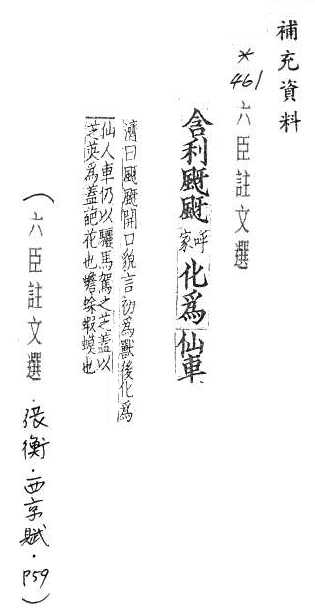 補充資料
*461 六臣註文選
含利颬颬呼家化爲仙車
濟曰颬颬開口貌言初為獸後化為
仙人車仍以驪馬駕之芝蓋以
芝英為蓋葩花也蟾蜍蝦蟆也
(六臣註文選.張衡.西京賦.P59)